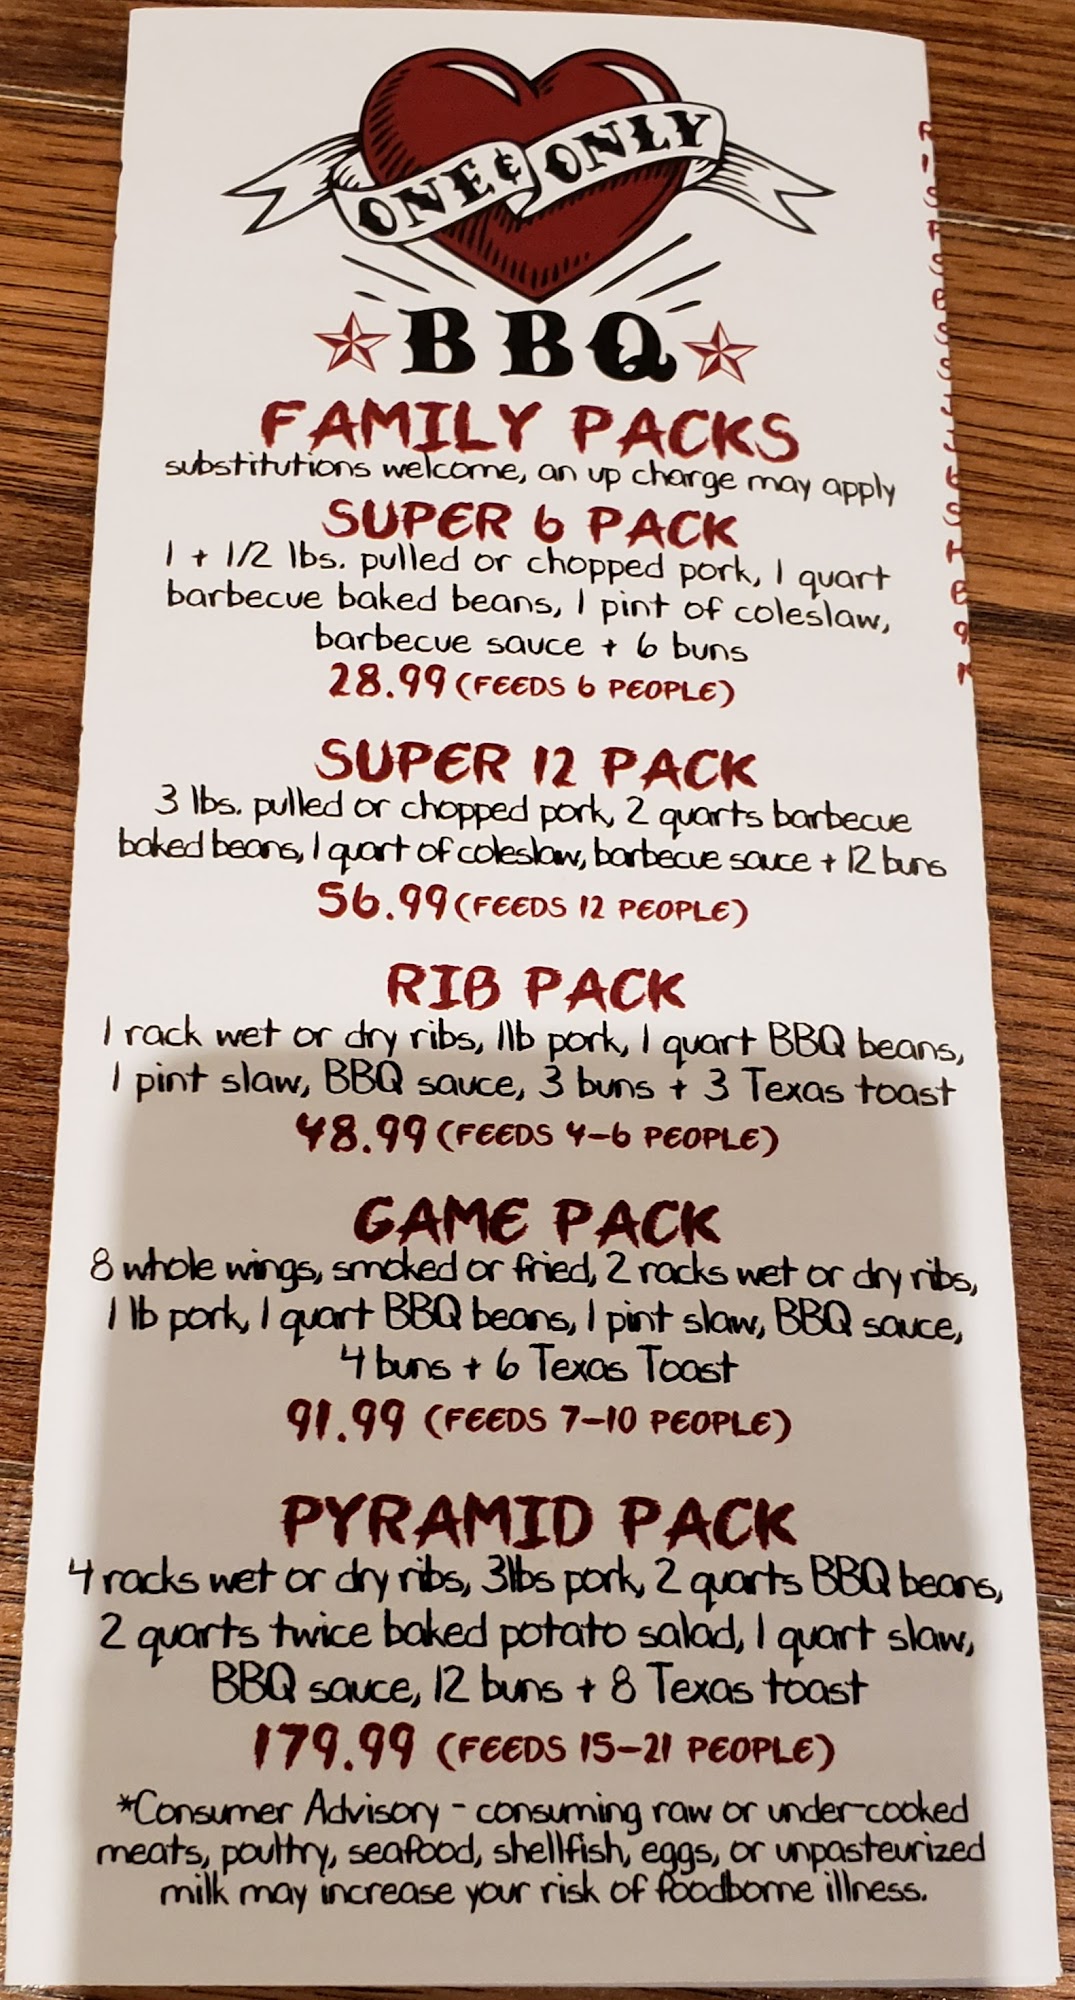 ONE & ONLY
BBQ
FAMILY PACKS
substitutions welcome, an up charge may apply
SUPER 6 PACK
1 + 1/2 lbs. pulled or chopped pork, 1 quart
barbecue baked beans, 1 pint of coleslaw,
barbecue sauce + 6 buns
28.99 (FEEDS 6 PEOPLE)
SUPER 12 PACK
3 lbs. pulled or chopped pork, 2 quarts barbecue
baked beans, 1 quart of coleslaw, barbecue sauce + 12 buns
56.99 (FEEDS 12 PEOPLE)
RIB PACK
1 rack wet or dry ribs, 1lb pork, 1 quart BBQ beans,
1 pint slaw, BBQ sauce, 3 buns + 3 Texas toast
48.99 (FEEDS 4-6 PEOPLE)
GAME PACK
8 whole wings, smoked or fried, 2 racks wet or dry ribs,
1 lb pork, 1 quart BBQ beans, 1 pint slaw, BBQ sauce,
4 buns + 6 Texas Toast
91.99 (FEEDS 7-10 PEOPLE)
PYRAMID PACK
4 racks wet or dry ribs, 3lbs pork, 2 quarts BBQ beans,
2 quarts twice baked potato salad, 1 quart slaw,
BBQ sauce, 12 buns + 8 Texas toast
179.99 (FEEDS 15-21 PEOPLE)
*Consumer Advisory - consuming raw or under-cooked
meats, poultry, seafood, shellfish, eggs, or unpasteurized
milk may increase your risk of foodborne illness.